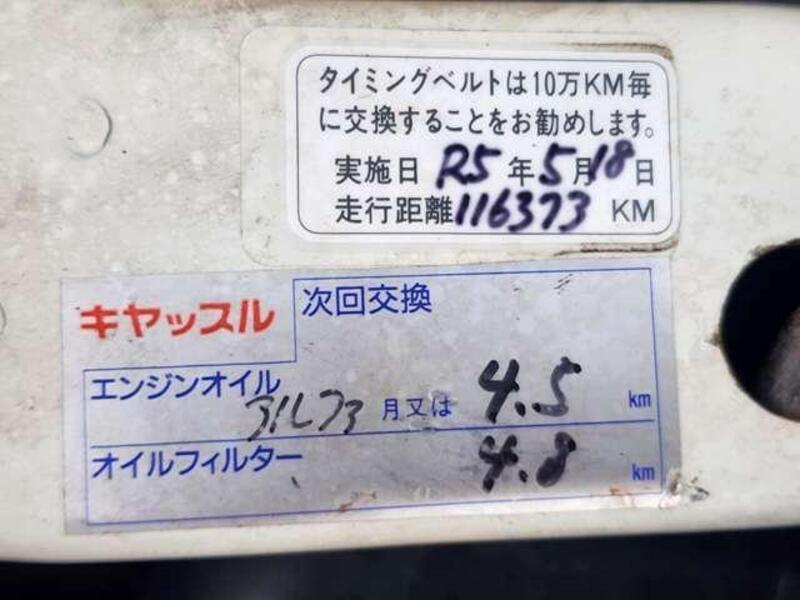 タイミングベルトは10万KM毎
に交換することをお勧めします。
実施日 R5 年 5 月 18 日
走行距離 116373 KM
キヤッスル
次回交換
エンジンオイル
アルファ 月又は 4.5 km
オイルフィルター 4.8 km